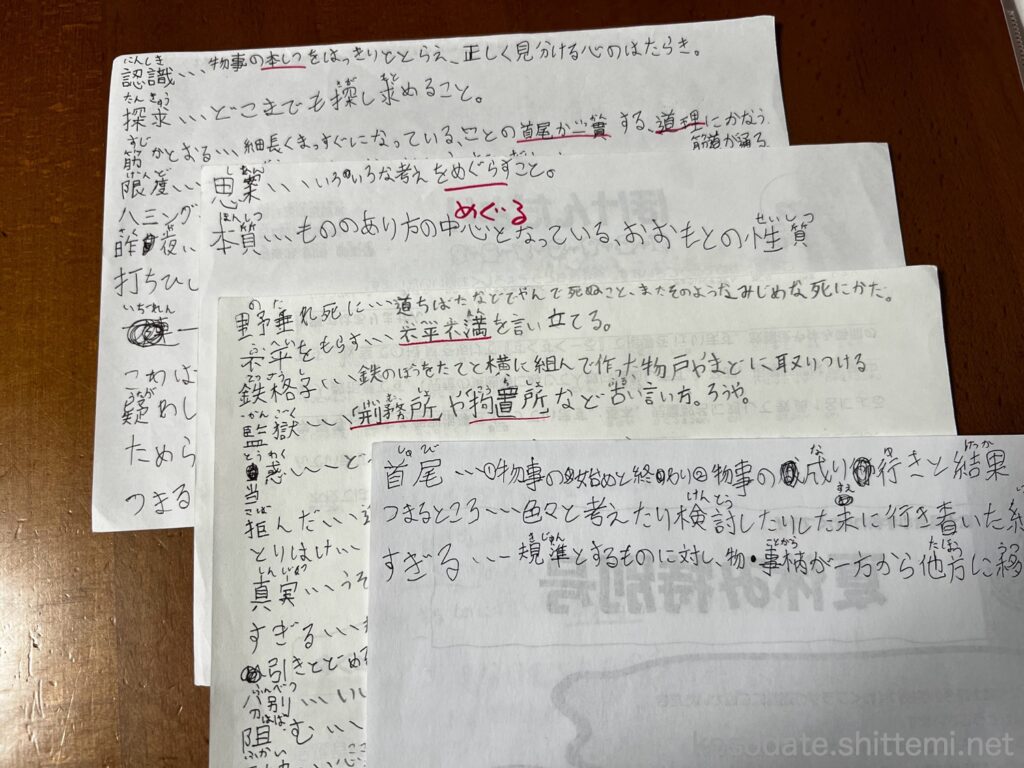 認識…物事の本しつをはっきりととらえ、正しく見分ける心のはたらき。
探求…どこまでも探し求めること。
筋がとおる…細長くまっすぐになっている、ことの首尾が一貫する、道理にかなう
筋道が通る
限度…
ハミング
昨夜…
打ちひし
一連
こわば
疑わし
ためら
つまる
思案…いろいろな考えをめぐらすこと。
めぐる
本質…もののあり方の中心となっている、おおもとの性質
野垂れ死に…道ちばたなどでやんで死ぬこと、またそのようなみじめな死にかた。
不平をもらす…不平不満を言い立てる。
鉄格子…鉄のぼうをたてと横に組んで作った物戸やまどに取りつける
監獄…「刑務所」や「拘置所」など古い言い方。ろうや。
当惑…と
拒んだ…
とりはけい…
真実…うそ
すぎる…
引きとどめる
分別…いい
阻む…
首尾…①物事の始めと終わり②物事の成り行きと結果
つまるところ…色々と考えたり検討したりした末に行き着いた結
すぎる…規準とするものに対し、物・事柄が一方から他方に移
夏休み特別号
ほけんだ
kosodate.shittemi.net